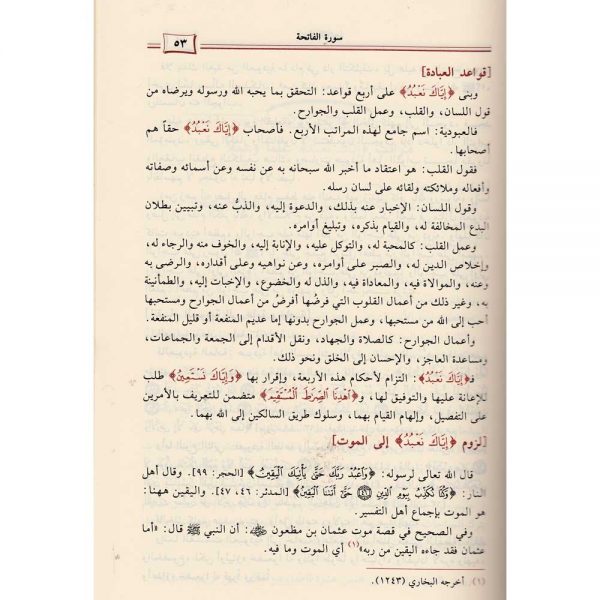 سورة الفاتحة
٥٣
[قواعد العبادة]
وبنى ﴿إِيَّاكَ نَعْبُدُ﴾ على أربع قواعد: التحقق بما يحبه الله ورسوله ويرضاه من
قول اللسان، والقلب، وعمل القلب والجوارح.
فالعبودية: اسم جامع لهذه المراتب الأربع. فأصحاب ﴿إِيَّاكَ نَعْبُدُ﴾ حقاً هم
أصحابها.
فقول القلب: هو اعتقاد ما أخبر الله سبحانه به عن نفسه وعن أسمائه وصفاته
وأفعاله وملائكته ولقائه على لسان رسله.
وقول اللسان: الإخبار عنه بذلك، والدعوة إليه، والذبُّ عنه، وتبيين بطلان
البدع المخالفة له، والقيام بذكره، وتبليغ أوامره.
وعمل القلب: كالمحبة له، والتوكل عليه، والإنابة إليه، والخوف منه والرجاء له،
وإخلاص الدين له، والصبر على أوامره، وعن نواهيه وعلى أقداره، والرضى به
وعنه، والموالاة فيه، والمعاداة فيه، والذل له والخضوع، والإخبات إليه، والطمأنينة
به، وغير ذلك من أعمال القلوب التي فرضُها أفرضُ من أعمال الجوارح ومستحبها
أحب إلى الله من مستحبها، وعمل الجوارح بدونها إما عديم المنفعة أو قليل المنفعة.
وأعمال الجوارح: كالصلاة والجهاد، ونقل الأقدام إلى الجمعة والجماعات،
ومساعدة العاجز، والإحسان إلى الخلق ونحو ذلك.
فـ﴿إِيَّاكَ نَعْبُدُ﴾: التزام لأحكام هذه الأربعة، وإقرار بها ﴿وَإِيَّاكَ نَسْتَعِينُ﴾ طلب
للإعانة عليها والتوفيق لها، و﴿اهْدِنَا الصِّرَاطَ الْمُسْتَقِيمَ﴾ متضمن للتعريف بالأمرين
على التفصيل، وإلهام القيام بهما، وسلوك طريق السالكين إلى الله بهما.
[لزوم ﴿إِيَّاكَ نَعْبُدُ﴾ إلى الموت]
قال الله تعالى لرسوله: ﴿وَاعْبُدْ رَبَّكَ حَتَّىٰ يَأْتِيَكَ الْيَقِينُ﴾ [الحجر: ٩٩]. وقال أهل
النار: ﴿وَكُنَّا نُكَذِّبُ بِيَوْمِ الدِّينِ ۝٤٦ حَتَّىٰ أَتَانَا الْيَقِينُ﴾ [المدثر: ٤٦، ٤٧]. واليقين ههنا:
هو الموت بإجماع أهل التفسير.
وفي الصحيح في قصة موت عثمان بن مظعون ﷺ: أن النبي ﷺ قال: «أما
عثمان فقد جاءه اليقين من ربه»(١) أي الموت وما فيه.
(١) أخرجه البخاري (١٢٤٣).